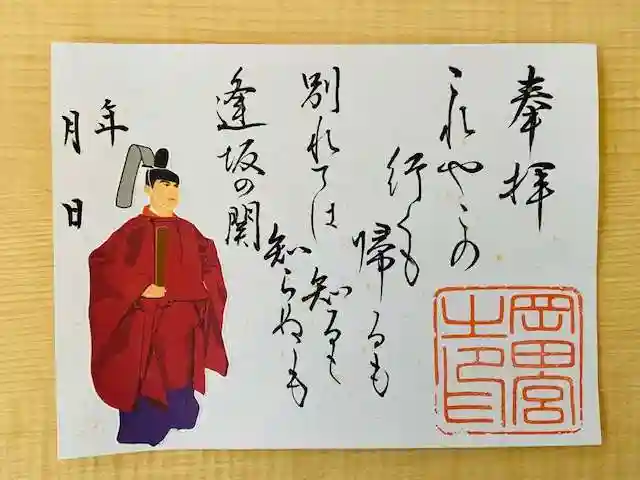 奉拝
これやこの
行くも
帰るも
別れては
知るも
知らぬも
逢坂の関
年
月
日
岡田宮